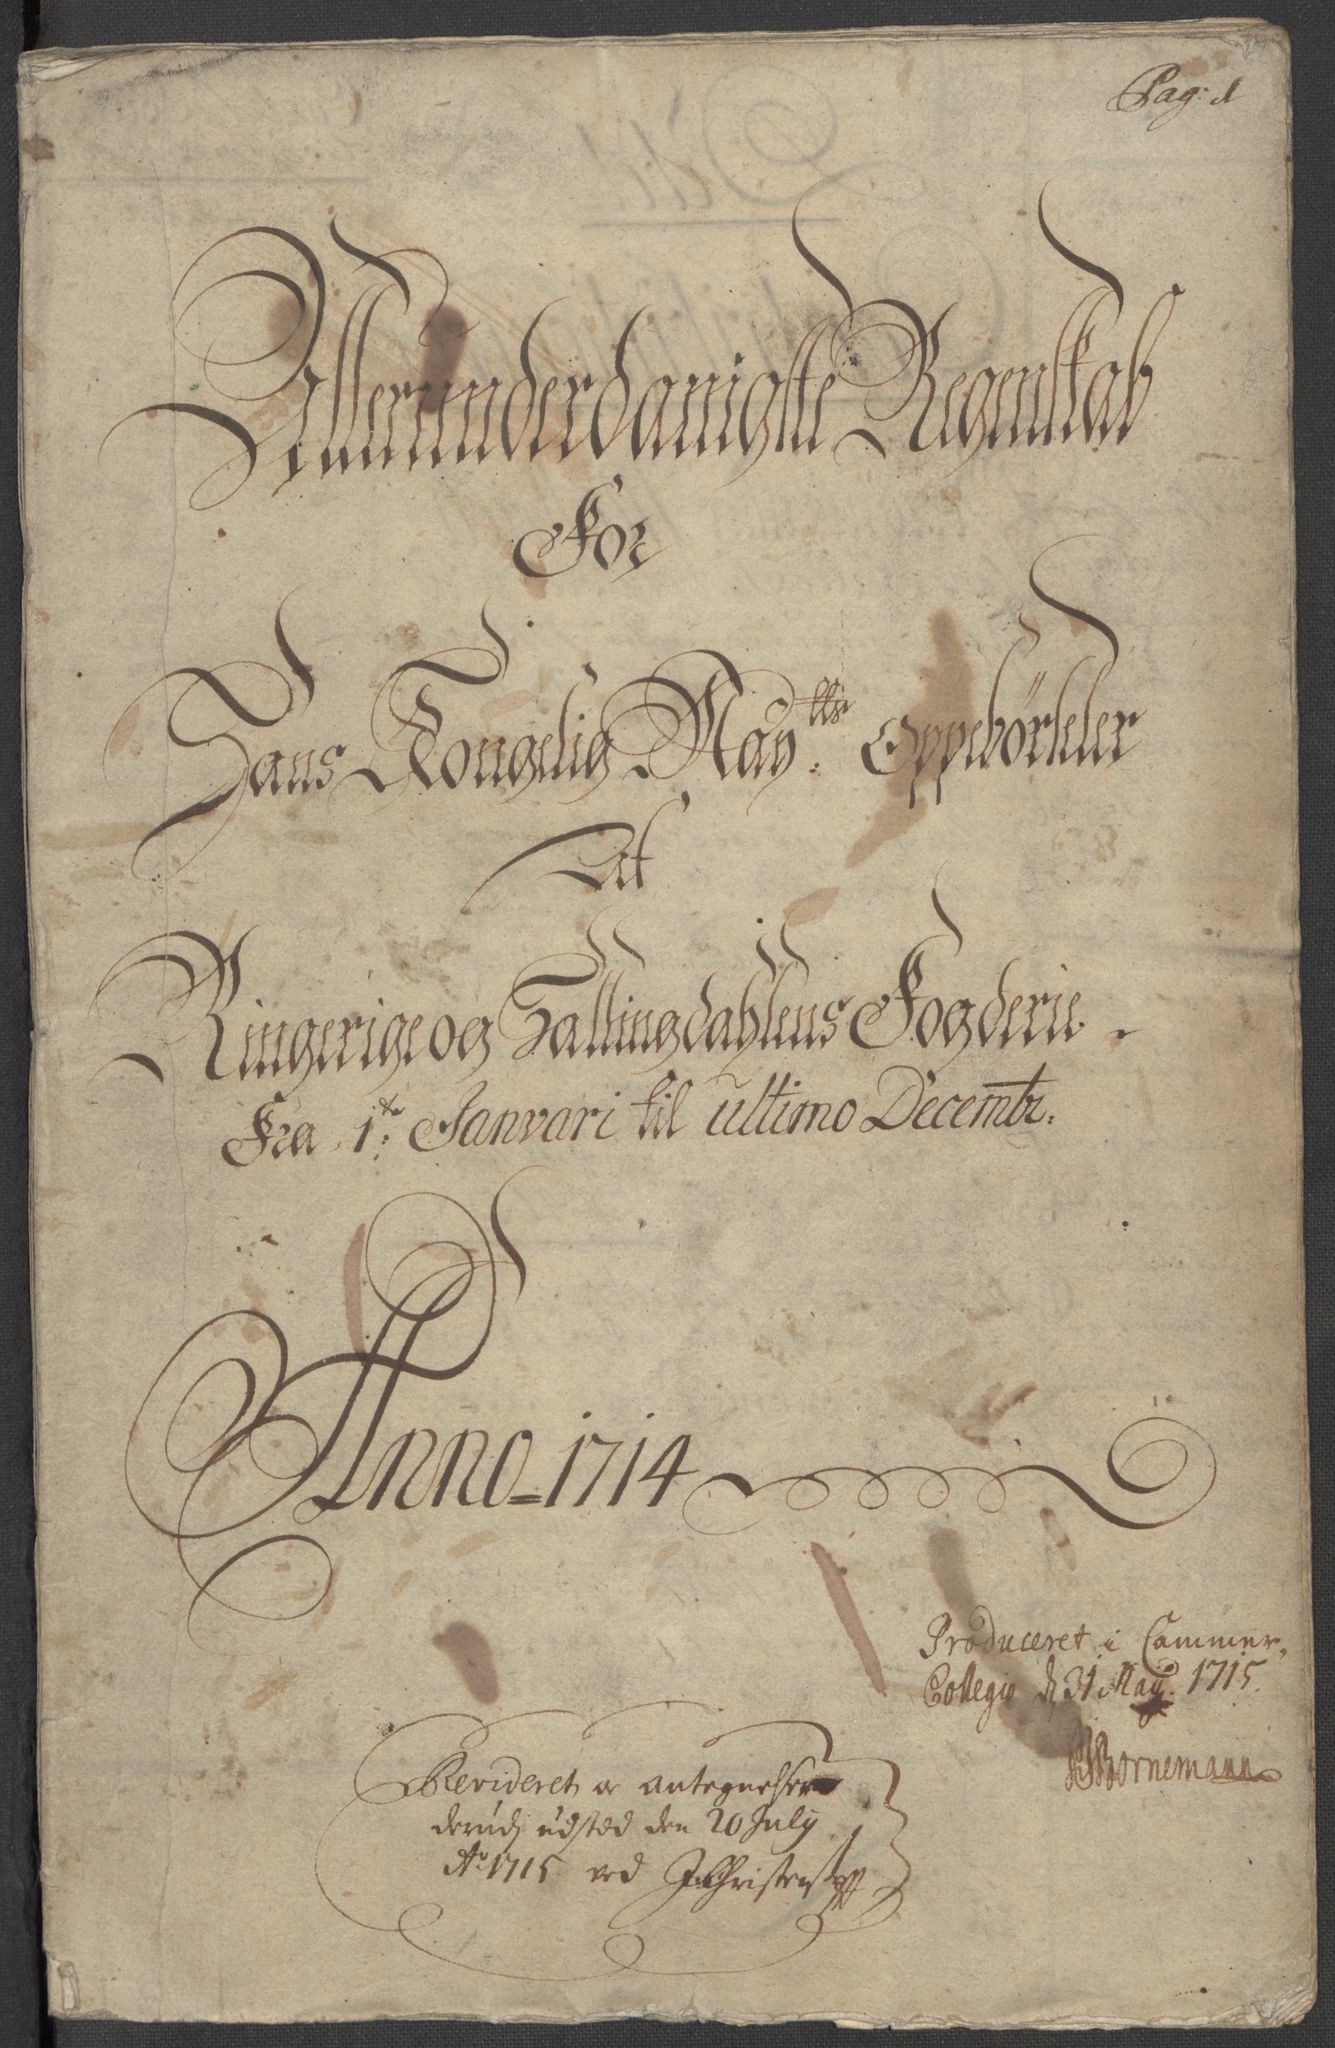 Pag: 1
Allerunderdanigste Regenskab
For
Hans Kongelig May:tts Oppebörseler
Af
Ringerige og Hallingdahlens Fogderie.
Fra 1te Janvari til ultimo Decembr.
Anno 1714
Produceret i Cammer,
Collegio d 31 May 1715.
Bornemann
Revideret og antegnelser
derudj udsted den 20 July
Ao 1715 ved JChristens